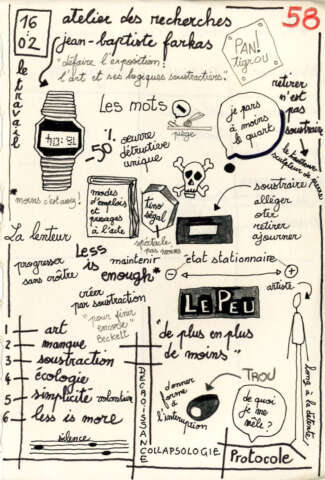 16
02
atelier des recherches
58
jean-baptiste farkas
"défaire l'exposition :
l'art et ses logiques soustractives."
PAN!
tigrou
le travail
Les mots
piège
-50%
œuvre
destructive
unique
je pars
à moins
le quart
retirer
n'est
pas
soustraire
le tailleur
sculpteur de pierre
* moins c'est assez!
modes
d'emplois
et
usages
à l'acte
tino
ségal
spectacle
pas moins
soustraire
alléger
ôter
retirer
ajourner
La lenteur
progresser
sans croître
Less
is
enough*
maintenir
état stationnaire
créer
par soustraction
"pour finir
encore"
Beckett
LE PEU
artiste
1 — art
2 — manque
3 — soustraction
4 — écologie
5 — simplicité volontaire
6 — less is more
silence
"de plus en plus
de moins"
DECROISSANCE
COLLAPSOLOGIE
donner
forme
à
l'interruption
TROU
de quoi
je me
mêle?
Protocole